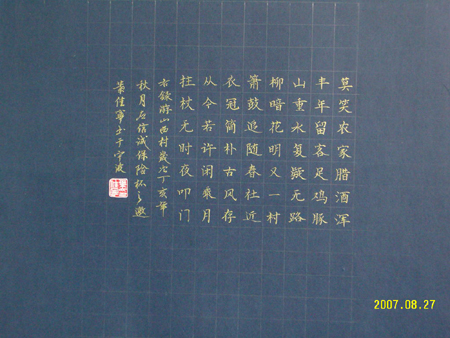 莫笑农家腊酒浑
丰年留客足鸡豚
山重水复疑无路
柳暗花明又一村
箫鼓追随春社近
衣冠简朴古风存
从今若许闲乘月
拄杖无时夜叩门
右录游山西村岁次丁亥年
秋月应信诚保险杯之邀
叶佳军书于宁波
2007.08.27